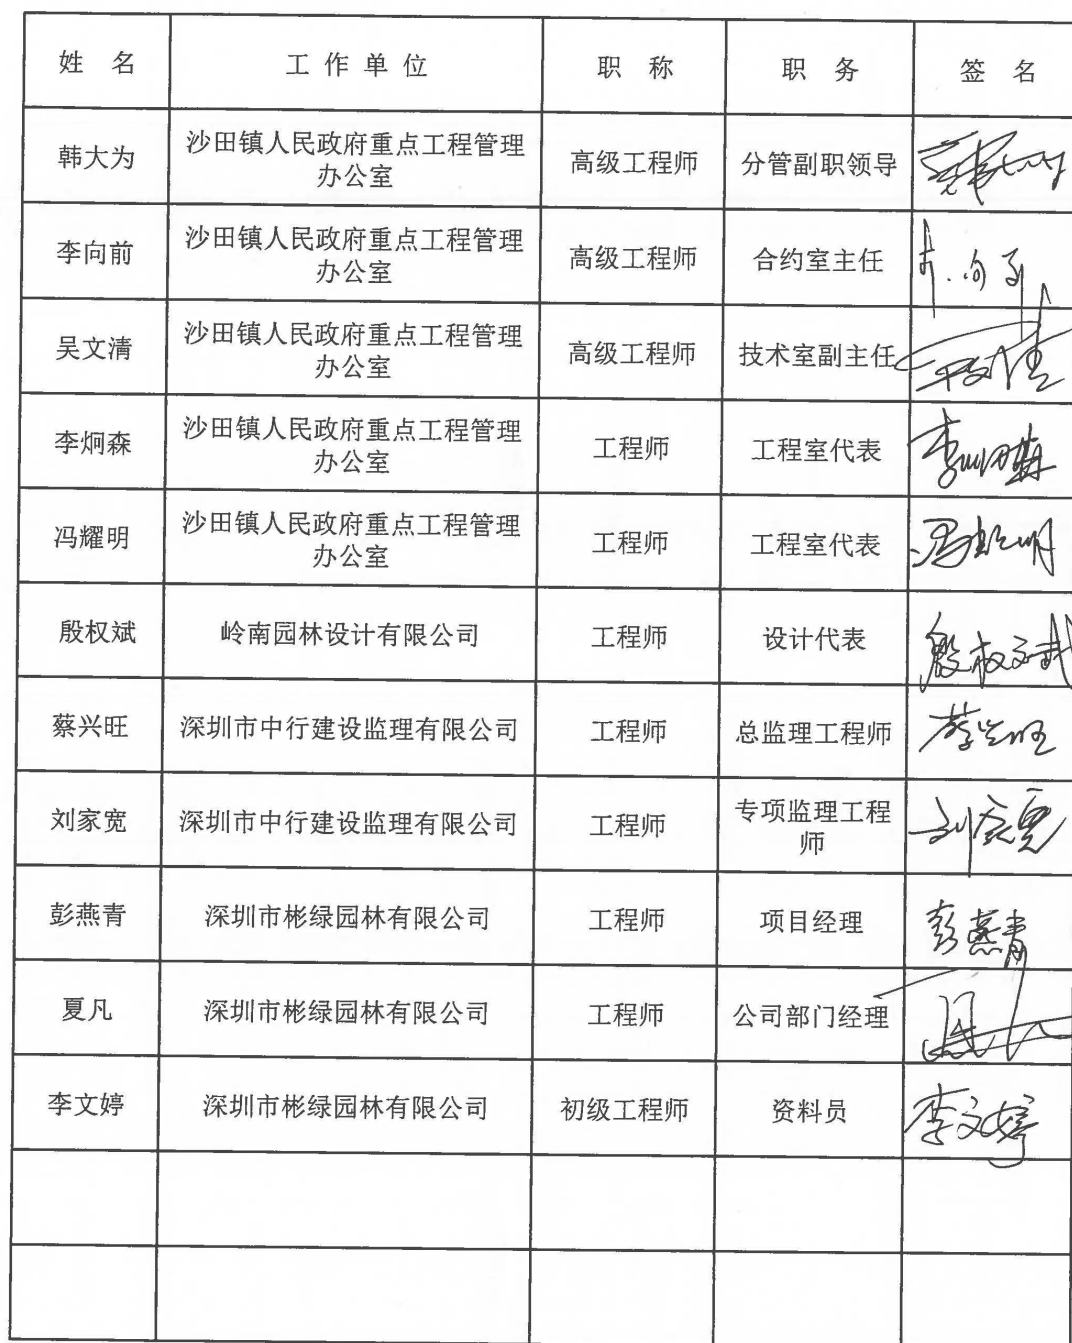 姓 名 工 作 单 位 职 称 职 务 签 名
韩大为 沙田镇人民政府重点工程管理办公室 高级工程师 分管副职领导 韩大为
李向前 沙田镇人民政府重点工程管理办公室 高级工程师 合约室主任 李向前
吴文清 沙田镇人民政府重点工程管理办公室 高级工程师 技术室副主任
李炯森 沙田镇人民政府重点工程管理办公室 工程师 工程室代表 李炯森
冯耀明 沙田镇人民政府重点工程管理办公室 工程师 工程室代表 冯耀明
殷权斌 岭南园林设计有限公司 工程师 设计代表 殷权斌
蔡兴旺 深圳市中行建设监理有限公司 工程师 总监理工程师 蔡兴旺
刘家宽 深圳市中行建设监理有限公司 工程师 专项监理工程师 刘家宽
彭燕青 深圳市彬绿园林有限公司 工程师 项目经理 彭燕青
夏凡 深圳市彬绿园林有限公司 工程师 公司部门经理
李文婷 深圳市彬绿园林有限公司 初级工程师 资料员 李文婷